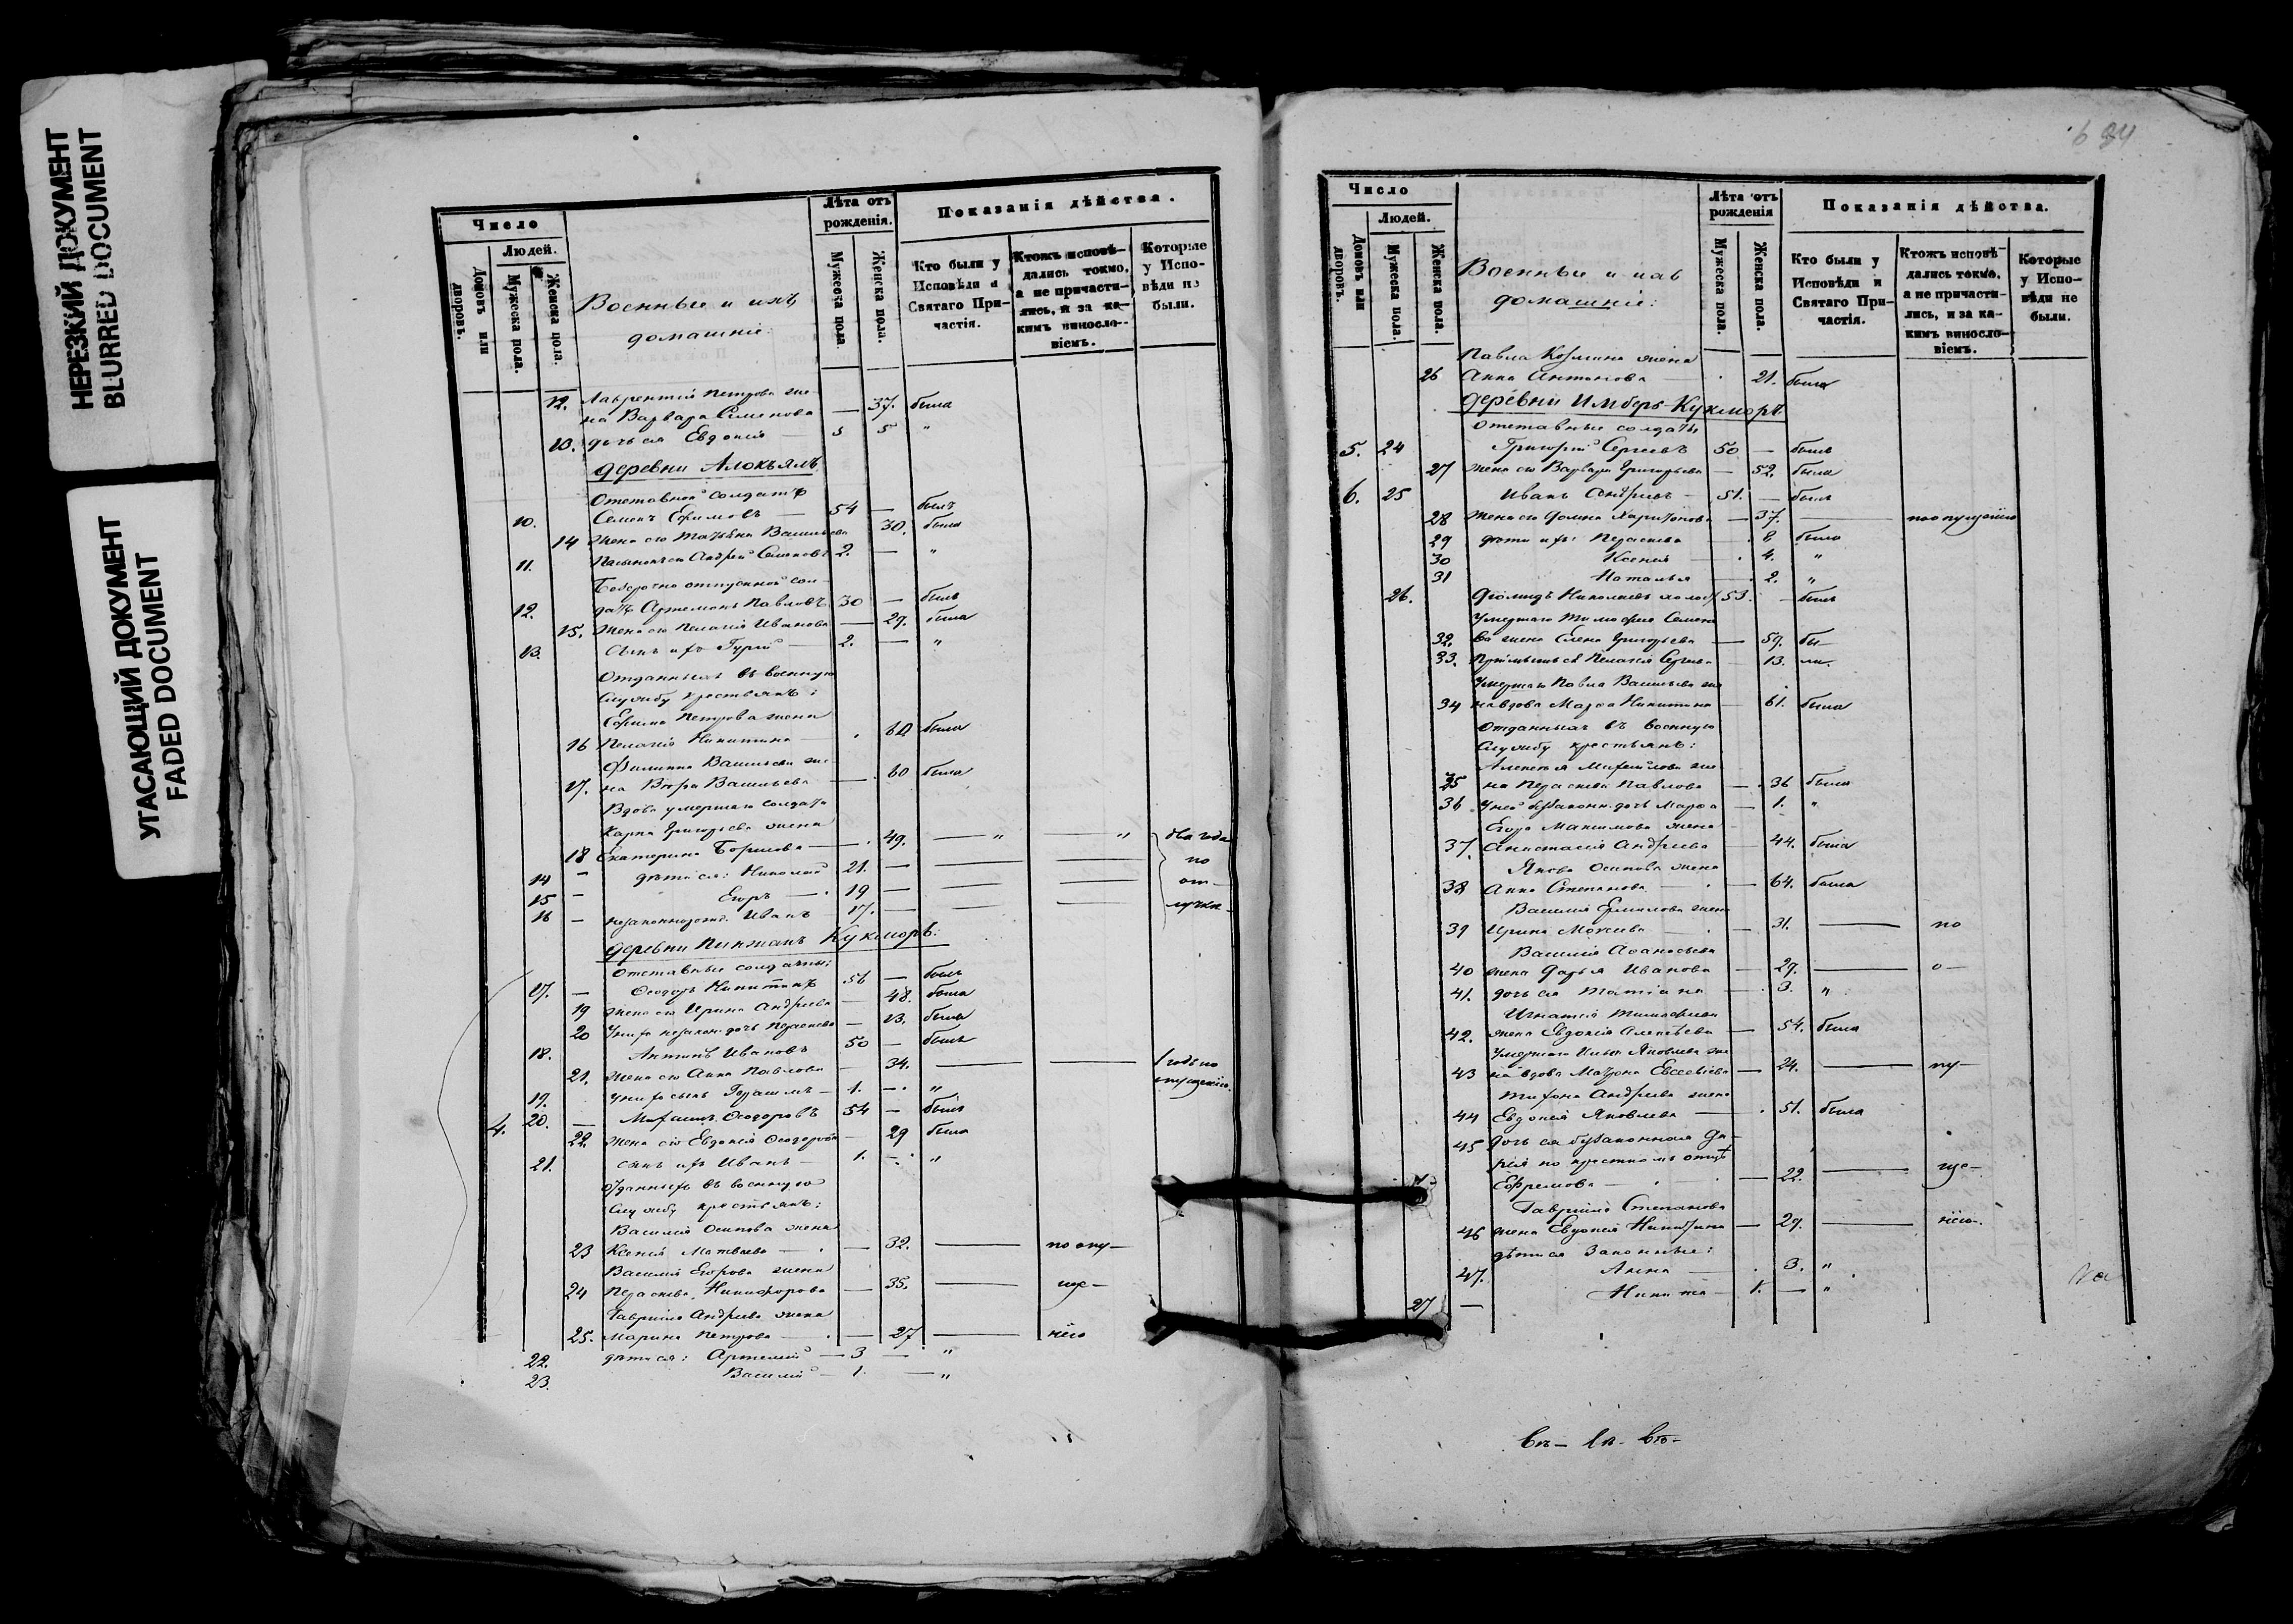 НЕРЕЗКИЙ ДОКУМЕНТ
BLURRED DOCUMENT
УГАСАЮЩИЙ ДОКУМЕНТ
FADED DOCUMENT
Число
Людей.
Домовъ или дворовъ.
Мужеска пола.
Женска пола.
Военные и ихъ
домашніе:
Лѣта отъ рожденія.
Мужеска пола.
Женска пола.
Показанія дѣйства.
Кто были у Исповѣди и Святаго Причастія.
Ктожъ исповѣдались токмо, а не причастились, и за какимъ винословіемъ.
Которые у Исповѣди не были.
Лаврентія Петрова же-
12. на Варвара Семенова — 37. была
10. дочь ея Евдокія — 5 "
деревни Алокъялъ
Отставной солдатъ
10. Семенъ Ефимовъ — 54 — былъ
14 жена его Татьяна Васильева 30. была
11. Пасынокъ его Андрей Семеновъ 2. — "
отпускной сол-
12. датъ Артемонъ Павловъ 30 — былъ
15. Жена его Пелагія Иванова — 29. была
13. Сынъ ихъ Гурій — 2. — "
Отданныхъ въ военную
службу крестьянъ:
Ефима Петрова жена
16 Пелагія Никитина — была
Филиппа Васильева же-
17. на Вѣра Васильева — 60 была
Вдова умершаго солдата
Карпа Григорьева жена
18 Екатерина Борисова — 49. — " — " два года
14 — дѣти ея: Николай 21. — по
15 — Егоръ — 19 — от-
16 — незаконнорожд. Иванъ 17. — лучкѣ
деревни Пинжанъ Кукморъ:
Отставные солдаты:
17. — Ѳеодоръ Никитинъ 56 — былъ
19 жена его Ирина Андреева — 48. была
20 У нихъ незакон. дочь Параскева — 13. была
18. Антипъ Ивановъ 50 — былъ
21. жена его Анна Павлова — 34. — 1 годъ по
19. У нихъ сынъ Герасимъ — 1. — " опущенію.
4. 20. — Михаилъ Ѳеодоровъ 54 — былъ
22. жена его Евдокія Ѳеодорова — 29 была
21. сынъ ихъ Иванъ — 1. — "
Отданныхъ въ военную
службу крестьянъ:
Василія Осипова жена
23 Ксенія Матвеева — 32. — по опу-
Василія Егорова жена
24 Параскева Никифорова — 35. — ще-
Гаврила Андреева жена
25. Марина Петрова — 27 — нію
22. дѣти ея: Артемій — 3 — "
23. Василій — 1. — "
Число
Людей.
Домовъ или дворовъ.
Мужеска пола.
Женска пола.
Военные и ихъ
домашніе:
Лѣта отъ рожденія
Мужеска пола.
Женска пола.
Показанія дѣйства.
Кто были у Исповѣди и Святаго Причастія.
Ктожъ исповѣдались токмо, а не причастились, и за какимъ винословіемъ.
Которые у Исповѣди не были.
Павла Козмина жена
26 Анна Антонова — 21. была
деревни Имберъ-Кукморъ
Отставные солдаты
5. 24 Григорій Сергеевъ 50 — былъ
27 жена его Варвара Григорьева — 52. была
6. 25 Иванъ Андреевъ — 51. — былъ
28 жена его Домна Харитонова — 37. — по опущенію
29 дѣти ихъ: Параскева — 8 была
30 Ксенія — 4. "
31 Наталья — 2. "
26. Николаевъ холост 53. — былъ
Умершаго Тимофея Семено-
32. ва жена Елена Григорьева — 59. бы-
33. Пелагія Сергеева — 13. ли.
Умершаго Павла Васильева же-
34 на вдова Марѳа Никитина — 61. была
Отданныхъ въ военную
службу крестьянъ:
Алексѣя Михайлова же-
35 на Параскева Павлова — 36 была
36 У ней незаконн. дочь Марѳа — 1. "
Егора Максимова жена
37. Анастасія Андреева — 44. была
Якова Осипова жена
38 Анна Степанова — 64. была
Василія Ермилова жена
39 Ирина Моисеева — 31. — по
Василія Аѳанасьева
40 жена Дарья Иванова — 29. — о-
41. дочь ея Татіана — 3. "
Игнатія Тимофеева
42. жена Евдокія Алексѣева — 54. была
Умершаго Ильи Яковлева же-
43 на вдова Матрона Евсевіева — 24. — пу-
Тихона Андреева жена
44 Евдокія Яковлева — 51. была
45 дочь ея незаконная Да-
рія по крестномъ отцѣ
Ефремова — 22. — ще-
Гавріила Степанова
46 жена Евдокія — 29. — нію.
дѣти ея законные:
47. Анна — 3. "
27 — Никита — 1. — "